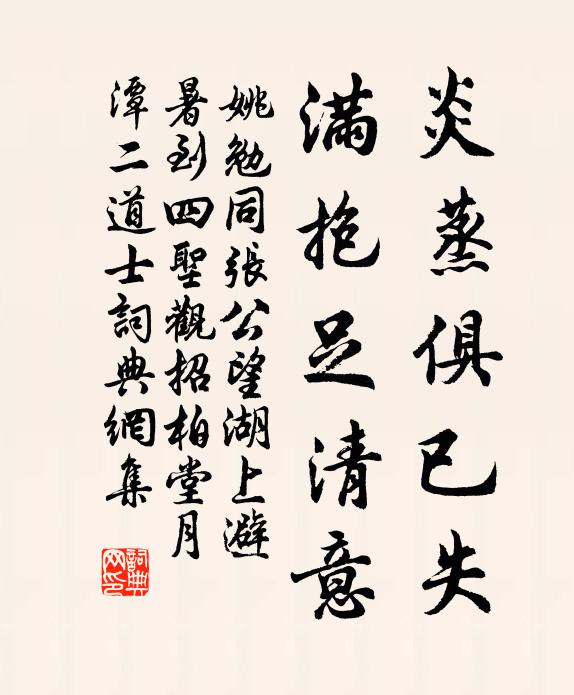 炎蒸俱已失
滿抱足清意
姚勉同張公望湖上避
暑到四聖觀招柏堂月
潭二道士詞典網集
詞典
网印